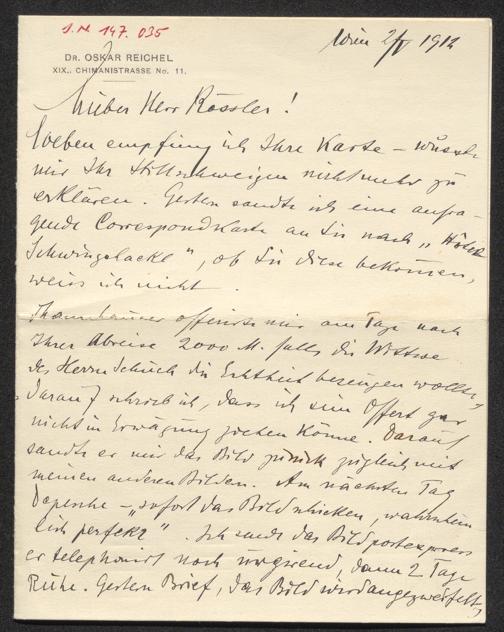 I.N. 147.035
Wien 2/V 1912
DR. OSKAR REICHEL
XIX., CHIMANISTRASSE No. 11.
Lieber Herr Rössler!
Soeben empfing ich Ihre Karte – wusste
mir Ihr Stillschweigen nicht mehr zu
erklären. Gestern sandte ich eine anfra-
gende Correspondkarte an Sie nach „Hotel
", ob Sie diese bekommen,
weiss ich nicht.
Thannhauser offerirte mir am Tage nach
Ihrer Abreise 2000 M. falls die Wittwe
des Herrn Schuch die Echtheit bezeugen wollte,
darauf schrieb ich, dass ich sein Offert gar
nicht in Erwägung ziehen könne. Darauf
sandte er mir das Bild zurück zugleich mit
meinen anderen Bildern. Am nächsten Tag
Depesche – „sofort das Bild schicken, wahrschein
lich perfekt". Ich sende das Bild postexpress
er telephonirt noch urgirend, dann 2 Tage
Ruhe. Gestern Brief, das Bild wird angezweifelt,